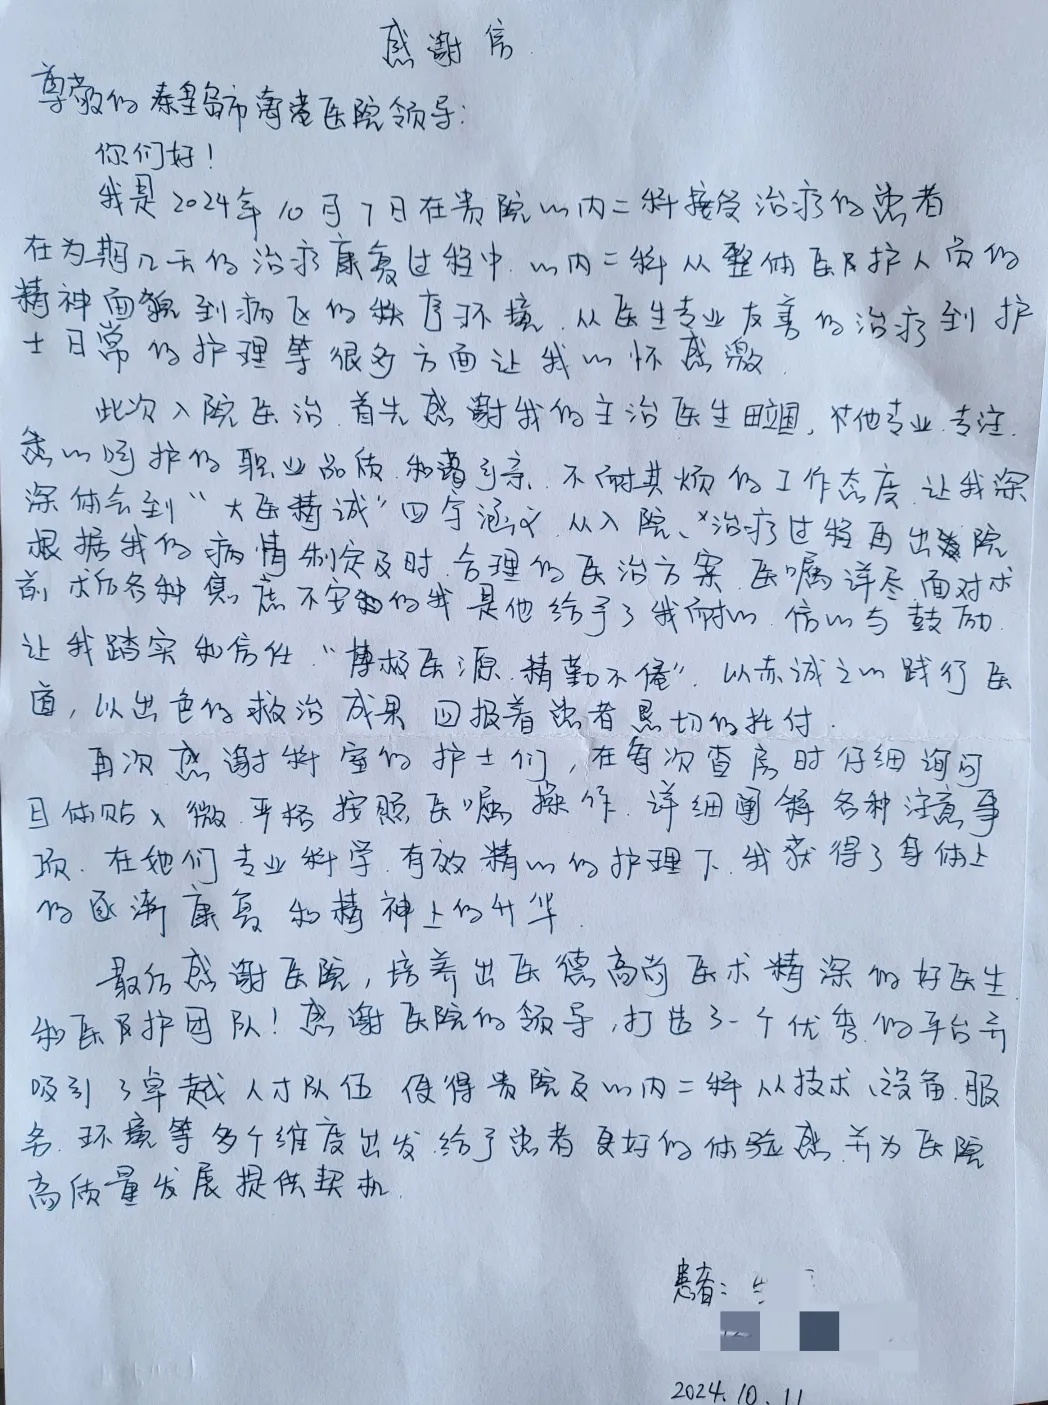 感谢信
尊敬的秦皇岛市海港医院领导:
你们好!
我是2024年10月7日在贵院心内二科接受治疗的患者
在为期几天的治疗康复过程中.心内二科从整体医及护人员的
精神面貌到病区的秩序环境.从医生专业友善的治疗到护
士日常的护理等很多方面让我心怀感激.
此次入院医治.首先感谢我的主治医生田,其他专业.专注.
悉心呵护的职业品质.和蔼可亲.不耐其烦的工作态度.让我深
深体会到“大医精诚”四字涵义.从入院、治疗过程再出院
根据我的病情制定及时.合理的医治方案.医嘱详尽.面对术
前术后各种焦虑不安的我是他给予了我耐心.信心与鼓励.
让我踏实和信任.“博极医源.精勤不倦”.以赤诚之心践行医
道,以出色的救治成果回报着患者恳切的托付.
再次感谢科室的护士们,在每次查房时仔细询问
且体贴入微.严格按照医嘱操作.详细阐释各种注意事
项.在她们专业科学.有效精心的护理下.我获得了身体上
的逐渐康复和精神上的升华.
最后感谢医院,培养出医德高尚医术精深的好医生
和医及护团队!感谢医院的领导,打造了一个优秀的平台并
吸引了卓越人才队伍 使得贵院及心内二科从技术、设备.服
务.环境等多个维度出发.给了患者更好的体验感.并为医院
高质量发展提供契机.
患者:
2024.10.11